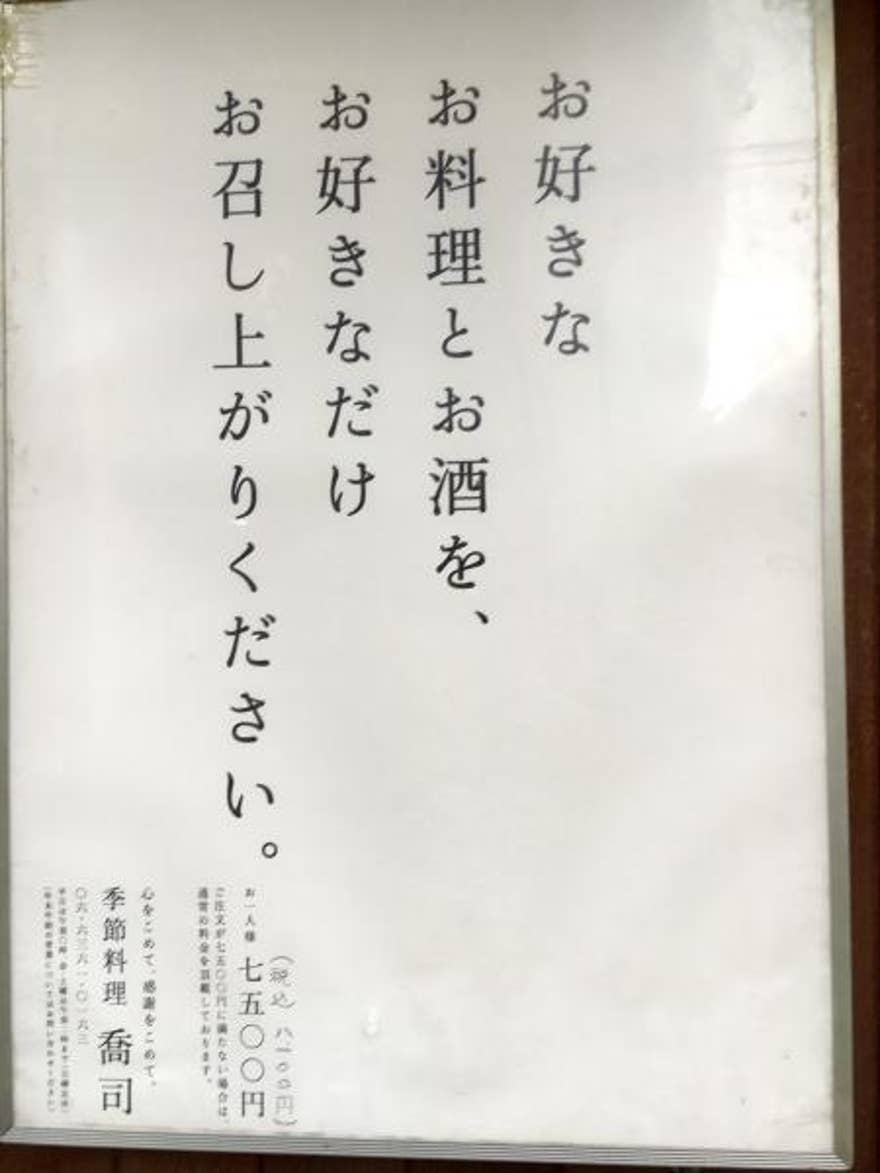 お好きな
お料理とお酒を、
お好きなだけ
お召し上がりください。
(税込 八、一〇〇円)
お一人様 七五〇〇円
ご注文が七五〇〇円に満たない場合は、
通常の料金を頂戴しております。
心をこめて、感謝をこめて。
季節料理 喬司
〇六・六三六一・〇一六三